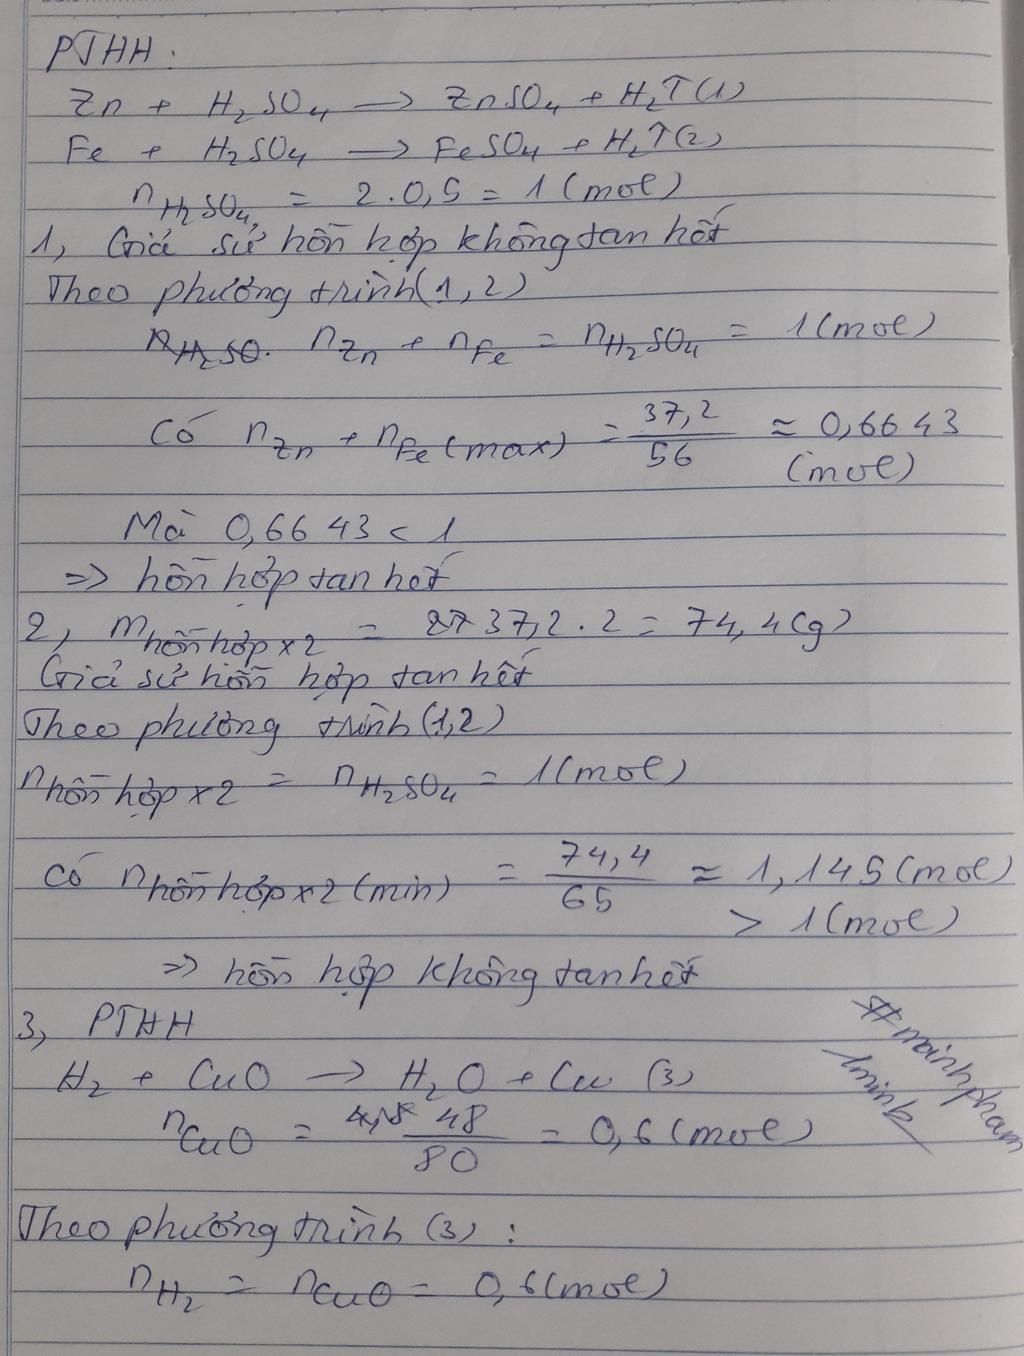 PTHH:
Zn + H₂SO₄ → ZnSO₄ + H₂↑(1)
Fe + H₂SO₄ → FeSO₄ + H₂↑(2)
nH₂SO₄ = 2.0,5 = 1 (mol)
1, Giả sử hỗn hợp không tan hết
Theo phương trình(1,2)
nZn + nFe = nH₂SO₄ = 1(mol)
Có nZn + nFe (max) = 37,2/56 ≈ 0,6643
(mol)
Mà 0,6643 < 1
=> hỗn hợp tan hết
2, mhỗn hợp x2 = 37,2.2 = 74,4(g)
Giả sử hỗn hợp tan hết
Theo phương trình(1,2)
nhỗn hợp x2 = nH₂SO₄ = 1(mol)
Có nhỗn hợp x2 (min) = 74,4/65 ≈ 1,145(mol)
> 1(mol)
=> hỗn hợp không tan hết
3, PTHH
H₂ + CuO → H₂O + Cu (3)
nCuO = 48/80 = 0,6(mol)
#mainhpham
1minh
Theo phương trình (3):
nH₂ = nCuO = 0,6(mol)